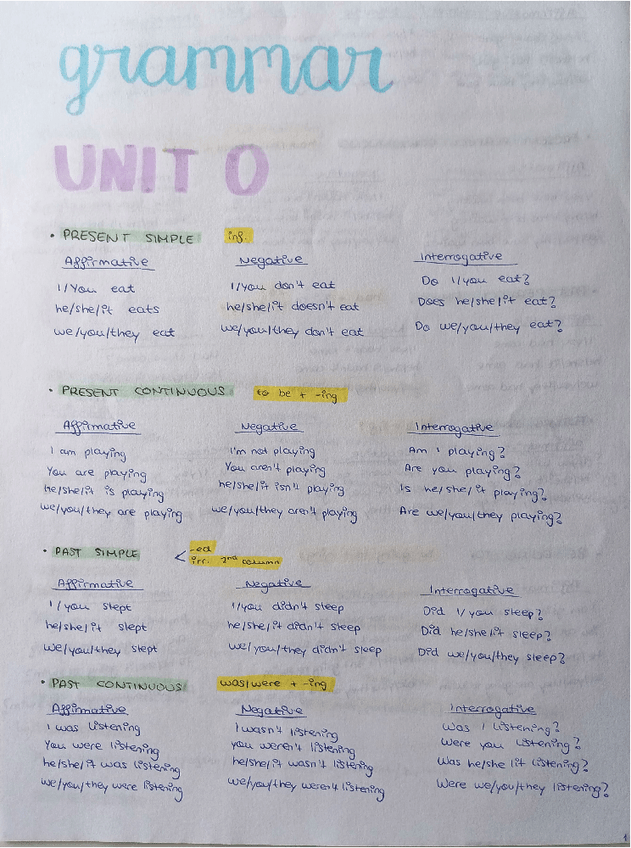 grammar
UNIT 0
• PRESENT SIMPLE inf.
Affirmative Negative Interrogative
I/You eat I/you don't eat Do I/you eat?
he/she/it eats he/she/it doesn't eat Does he/she/it eat?
we/you/they eat we/you/they don't eat Do we/you/they eat?
• PRESENT CONTINUOUS to be + -ing
Affirmative Negative Interrogative
I am playing I'm not playing Am I playing?
You are playing You aren't playing Are you playing?
he/she/it is playing he/she/it isn't playing Is he/she/it playing?
we/you/they are playing we/you/they aren't playing Are we/you/they playing?
• PAST SIMPLE < -ed
irr. 2nd column
Affirmative Negative Interrogative
I/you slept I/you didn't sleep Did I/you sleep?
he/she/it slept he/she/it didn't sleep Did he/she/it sleep?
we/you/they slept we/you/they didn't sleep Did we/you/they sleep?
• PAST CONTINUOUS was/were + -ing
Affirmative Negative Interrogative
I was listening I wasn't listening Was I listening?
You were listening you weren't listening Were you listening?
he/she/it was listening he/she/it wasn't listening Was he/she/it listening?
we/you/they were listening we/you/they weren't listening Were we/you/they listening?
1